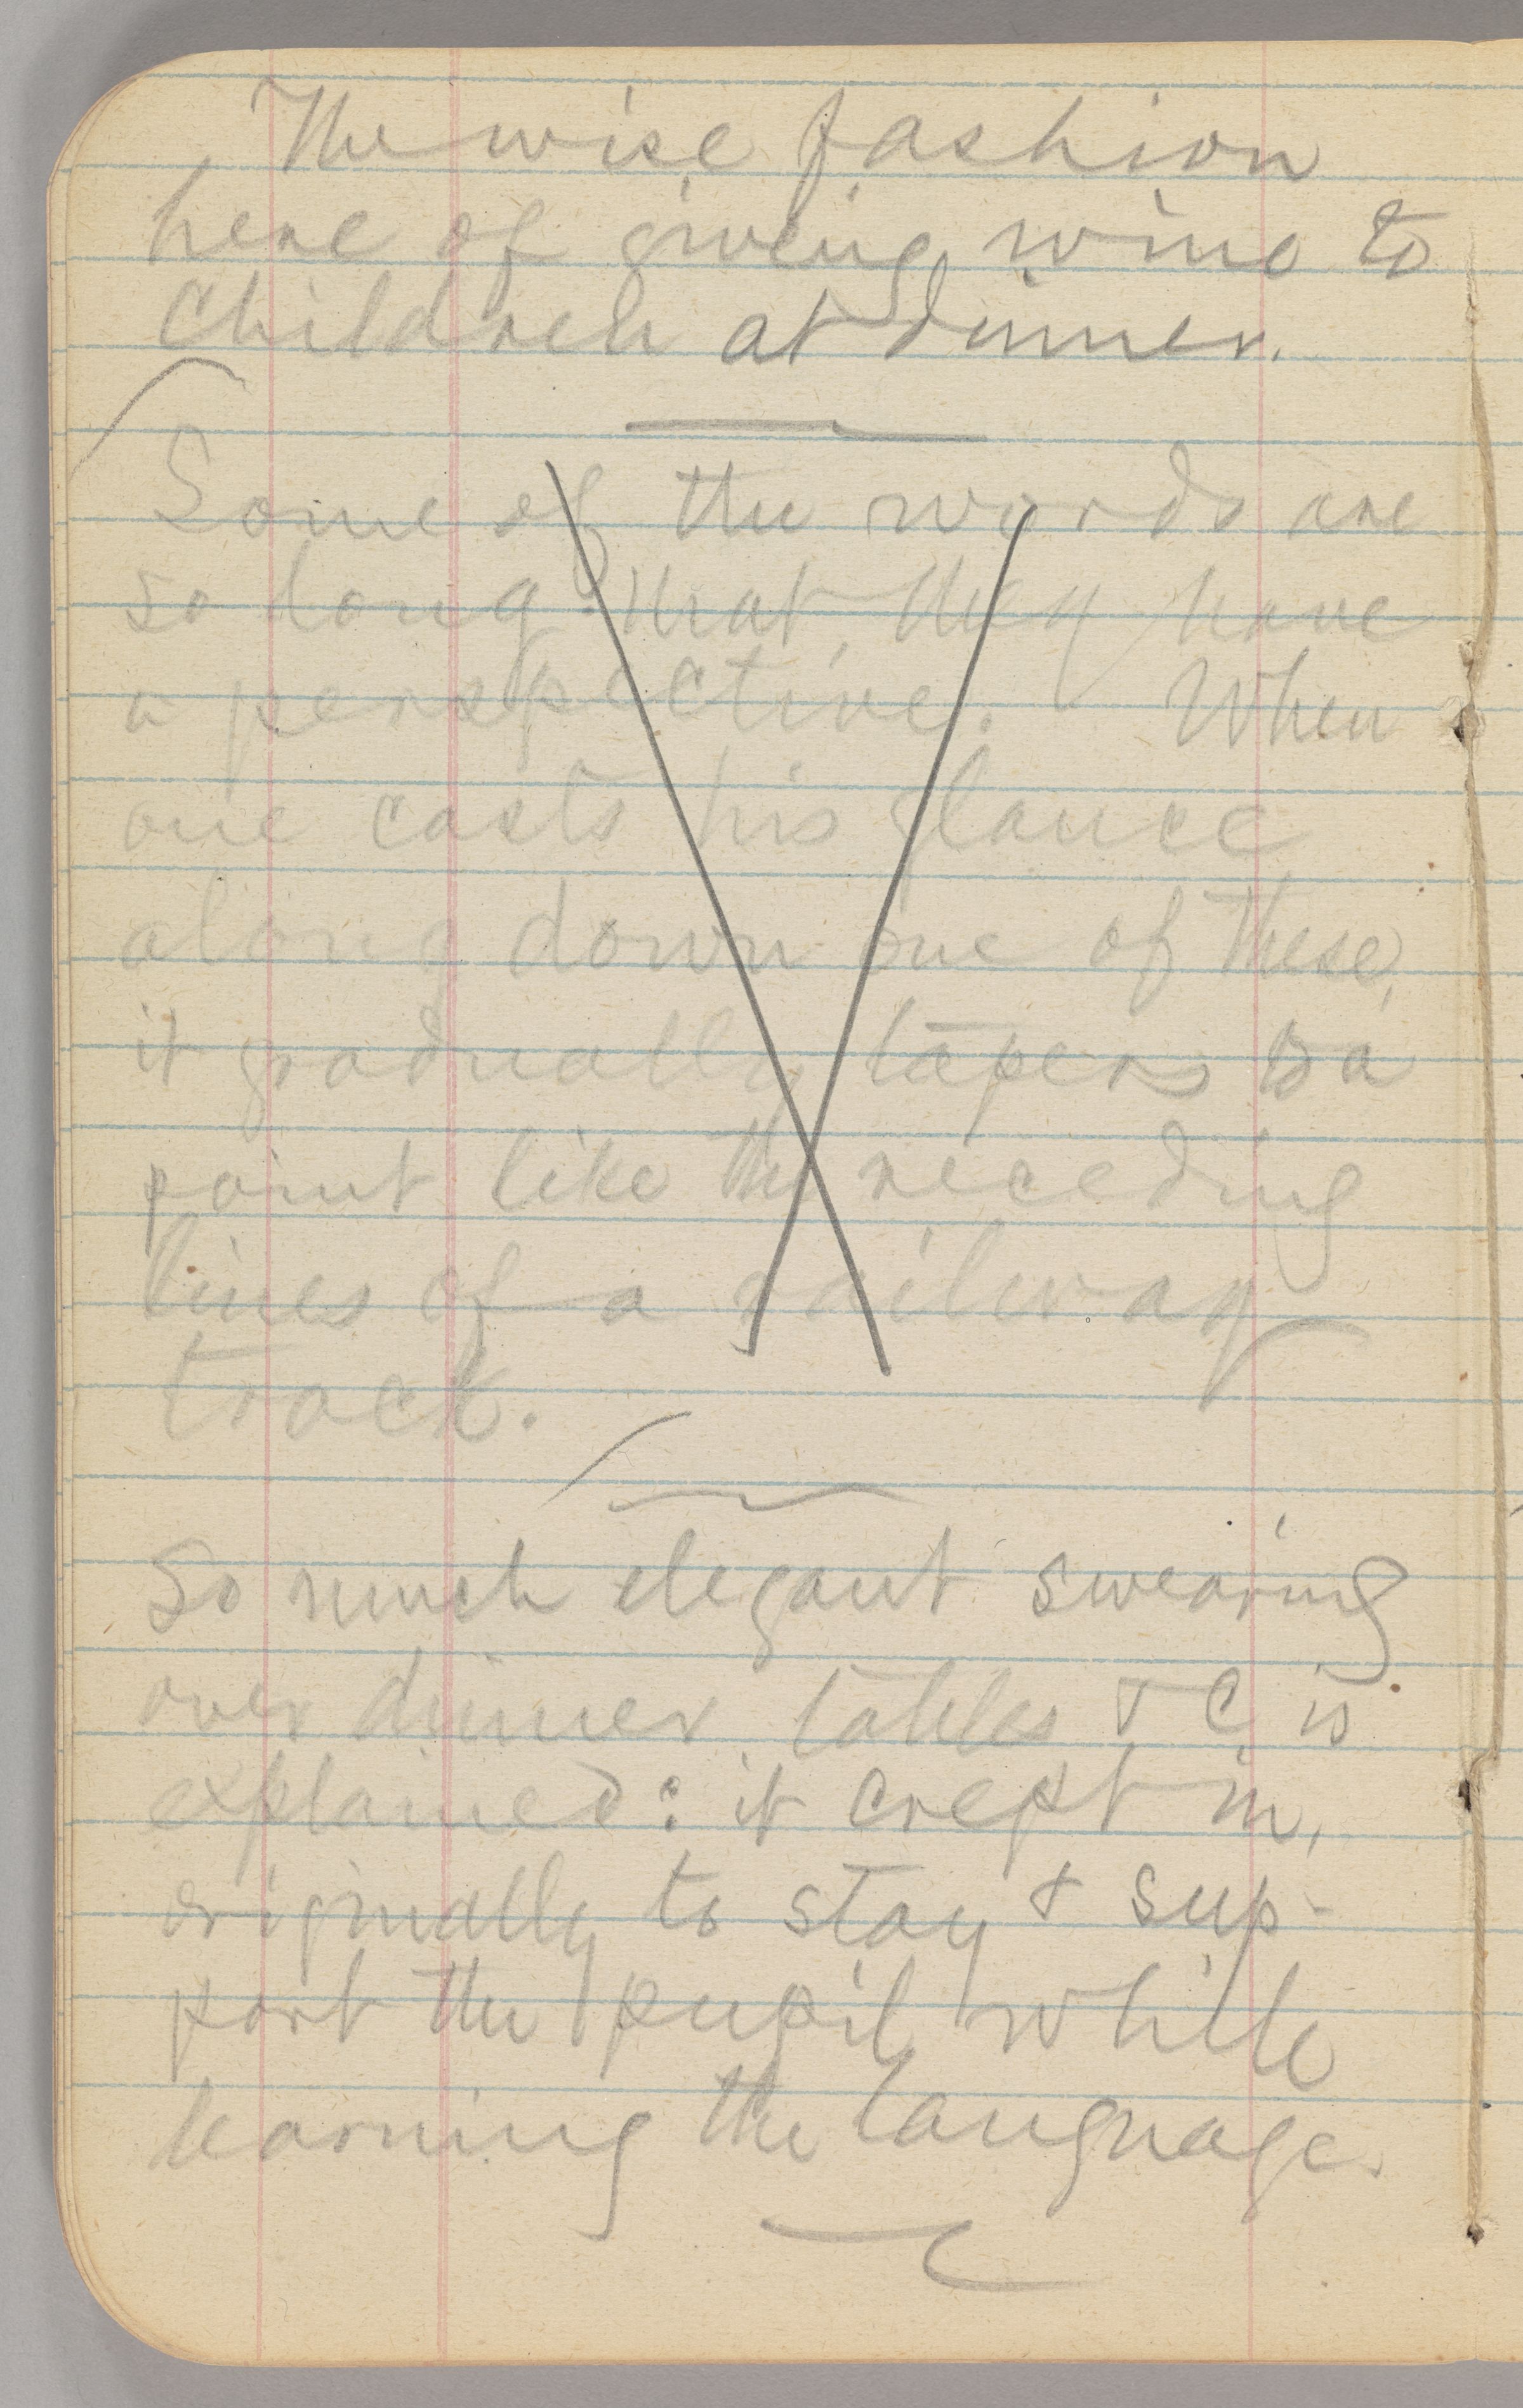 The wise fashion
here of giving wine to
children at dinner.
Some of the words are
so long that they have
a perspective. When
one casts his glance
along down one of these,
it gradually tapers to a
point like the receding
lines of a railway
track.
So much elegant swearing
over dinner tables &c is
explained: it crept in,
originally to stay & sup-
port the pupil while
learning the language.